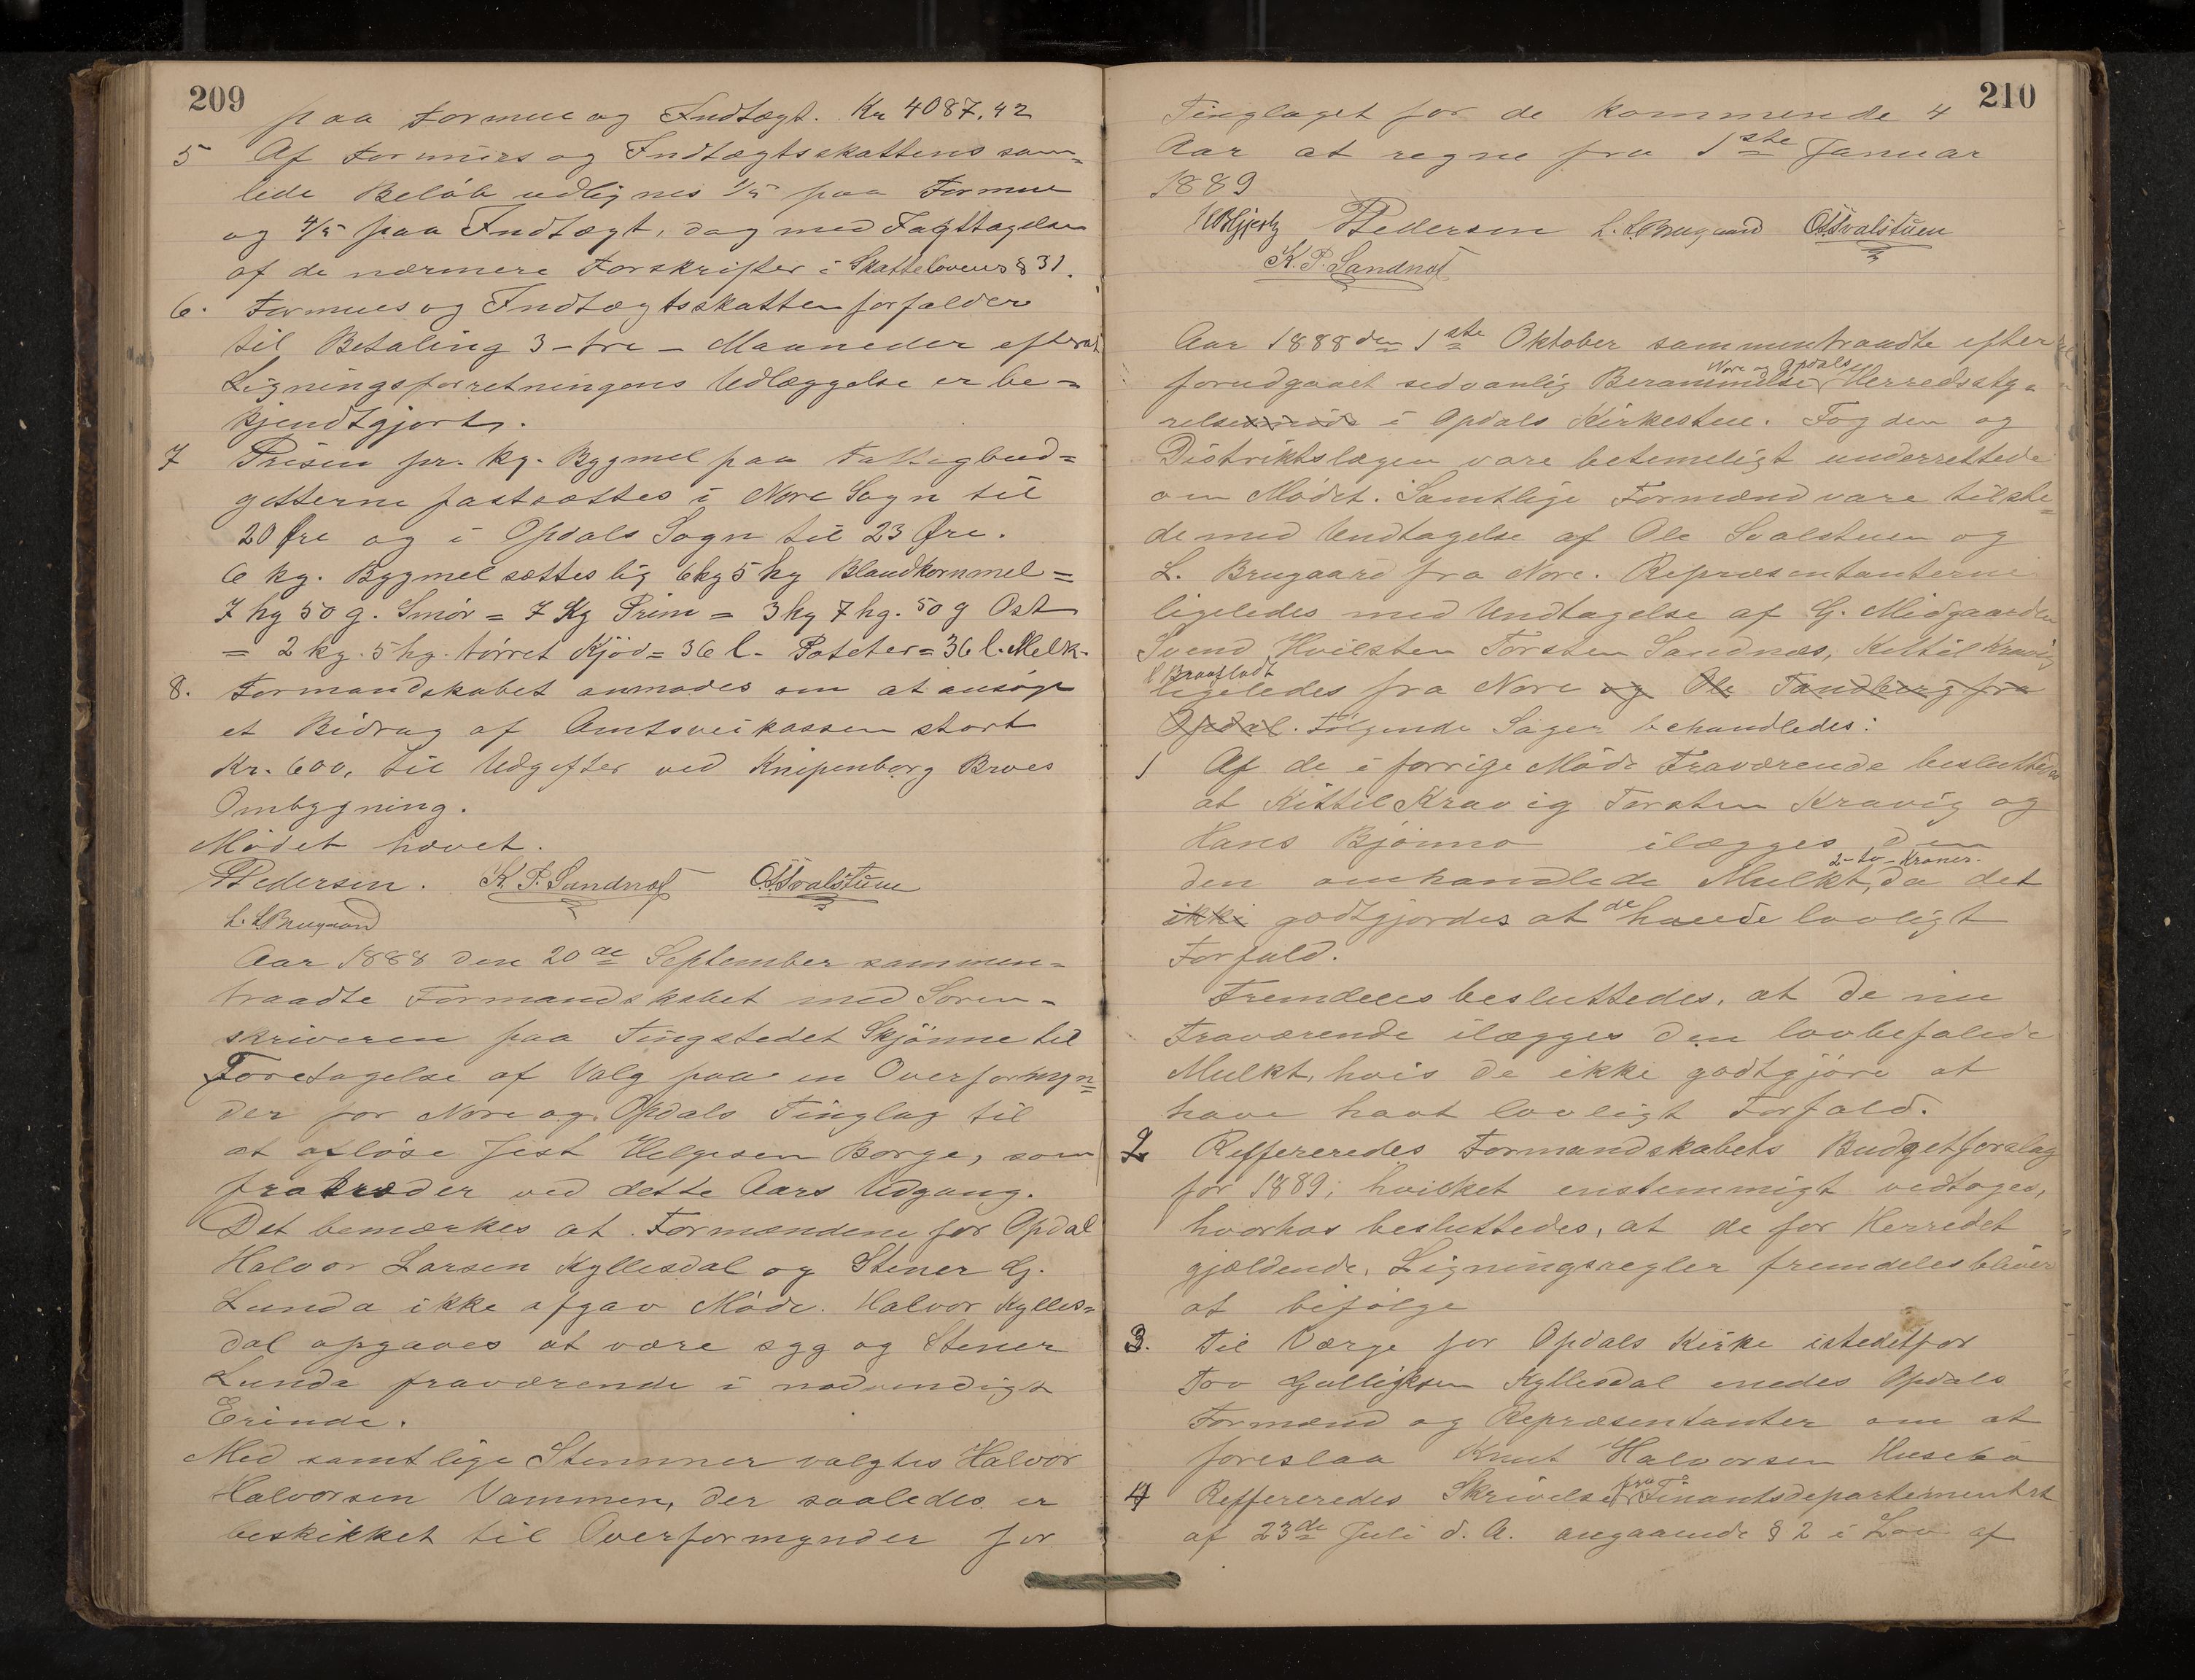 209
paa Formue og Indtægt. Kr 4087,42
5 Af Formues og Indtægtsskattens sam=
lede Beløb udlignes 1/5 paa Formue
og 4/5 paa Indtægt, dog med Iagttagelse
af de nærmere Forskrifter i Skattelovens § 31.
6. Formues og Indtægtsskatten forfalder
til Betaling 3 - tre - Maaneder efterat
Ligningsforretningens Udlæggelse er be=
kjendtgjort.
7 Prisen pr. kg. Bygmel paa Fattigbud=
getterne fastsættes i Nore Sogn til
20 Øre og i Opdals Sogn til 23 Øre.
6 kg. Bygmel sættes lig 6 kg 5 hg Blandkornmel =
7 hg 50 g. Smør = 7 Kg Prim = 3 kg 7 hg. 50 g Ost
= 2 kg. 5 hg. tørret Kjød = 36 l. Poteter = 36 l. Melk.
8. Formandskabet anmodes om at ansøge
et Bidrag af Amtsveikassen stort
Kr. 600, til Udgifter ved Knipenborg Broes
Ombygning.
Mødet hævet.
Pedersen. K. P. Sandnes O.T. Svalstuen
L. L. Brugaard
Aar 1888 den 20de September sammen=
traadte Formandskabet med Soren=
skriveren paa Tingstedet Skjønne til
Foretagelse af Valg paa en Overformyn=
der for Nore og Opdals Tinglag til
at afløse Jest Helgesen Borge, som
fratræder ved dette Aars Udgang.
Det bemærkes at Formændene for Opdal
Halvor Larsen Kyllesdal og Stener G.
Lunda ikke afgav Møde. Halvor Kylles=
dal opgaves at være syg og Stener
Lunda fraværende i nødvendigt
Erinde.
Med samtlige Stemmer valgtes Halvor
Halvorsen Vammen, der saaledes er
beskikket til Overformynder for
210
Tinglaget for de kommende 4
Aar at regne fra 1ste Januar
1889
Pedersen L. L. Brugaard O.T. Svalstuen
K. P. Sandnes
Aar 1888 den 1ste Oktober sammentraadte efter
forudgaaet sedvanlig Berammelse Nore og Opdals Herredssty=
relse i Opdals Kirkestue. Fogden og
Distriktslægen vare betimeligt underrettede
om Mødet. Samtlige Formænd vare tilste=
de med Undtagelse af Ole Svalstuen og
L. Brugaard fra Nore. Repræsentanterne
ligeledes med Undtagelse af G. Midgaarden
Svend Hvilsten Torsten Sandnæs, Kittil Kravig
ligeledes fra Nore og Ole Tandberg fra
Opdal. Følgende Sager behandledes:
1 Af de i forrige Møde Fraværende besluttedes
at Kittil Kravig Torsten Kravig og
Hans Bjønno ilægges den
den omhandlede Mulkt, 2-to-Kroner. da det
ikke godtgjordes at de havde lovligt
Forfald.
Fremdeles besluttedes, at de nu
Fraværende ilægges den lovbefalede
Mulkt, hvis de ikke godtgjøre at
have havt lovligt Forfald.
2 Reffereredes Formandskabets Budgetforslag
for 1889, hvilket enstemmigt vedtoges,
hvorhos besluttedes, at de for Herredet
gjældende Ligningsregler fremdeles bliver
at befølge
3. Til Værge for Opdals Kirke istedetfor
Tov Gulliksen Kyllesdal enedes Opdals
Formænd og Repræsentanter om at
foreslaa Knut Halvorsen Husebø
4 Reffereredes Skrivelse fra Finantsdepartementet
af 23de Juli d. A. angaaende § 2 i Lov af